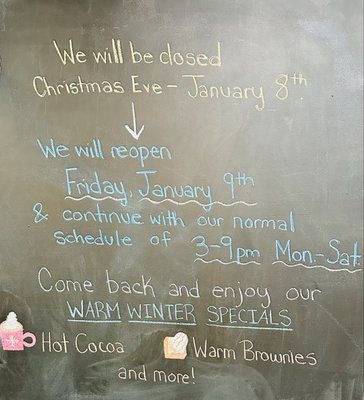 We will be closed
Christmas Eve - January 8th.
We will reopen
Friday, January 9th
& continue with our normal
schedule of 3-9pm Mon.-Sat.
Come back and enjoy our
WARM WINTER SPECIALS
Hot Cocoa Warm Brownies
and more!